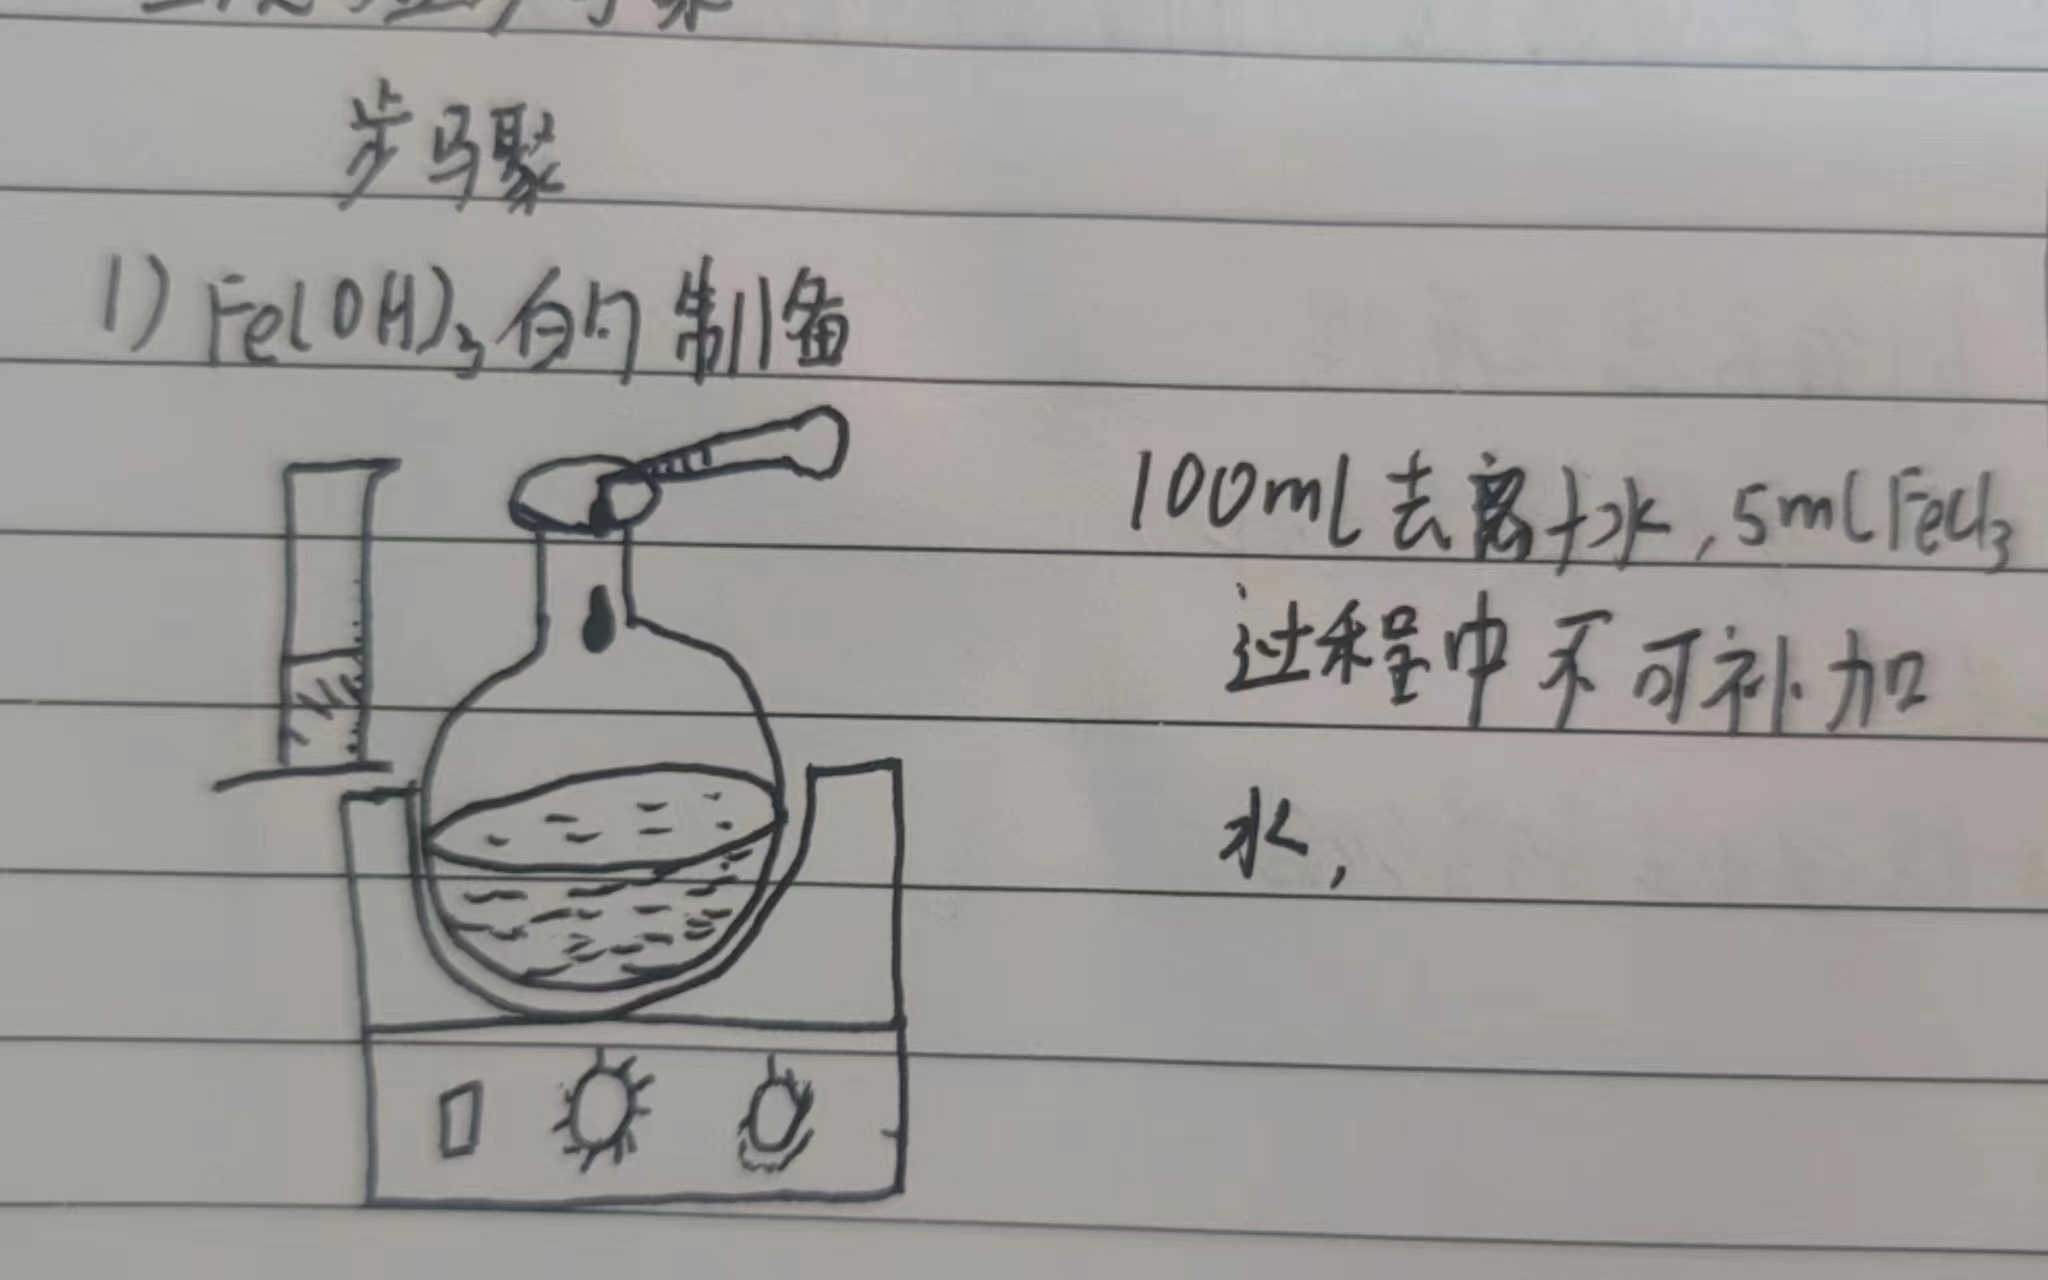 步骤
1) Fe(OH)₃的制备
100ml去离水,5mlFeCl₃
过程中不可补加
水,